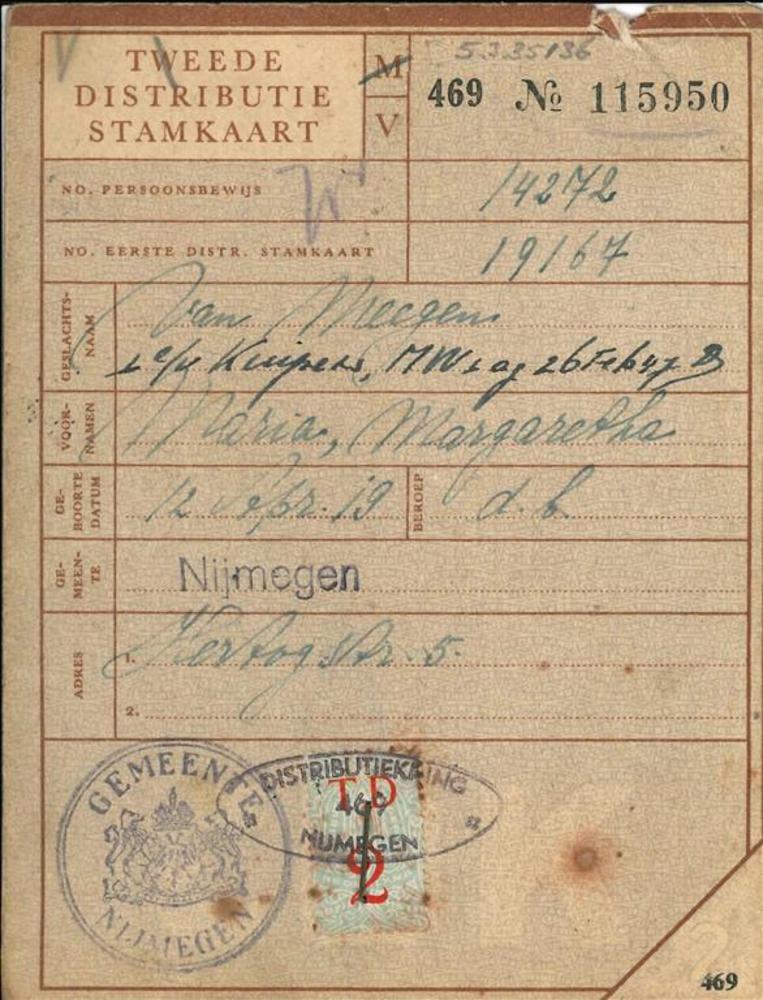 5335136
TWEEDE
DISTRIBUTIE
STAMKAART
M
V
469 № 115950
NO. PERSOONSBEWIJS 14272
NO. EERSTE DISTR. STAMKAART 19167
GESLACHTS-
NAAM
van Meegen
Kuipers, MW 26 Feb 47
VOOR-
NAMEN
Maria, Margaretha
GE-
BOORTE
DATUM
12 Apr. 19
BEROEP
d. b.
GE-
MEEN-
TE
Nijmegen
ADRES
1. Hertogstr. 5.
2.
GEMEENTE
NIJMEGEN
DISTRIBUTIEKRING
469
NIJMEGEN
TD
2
469